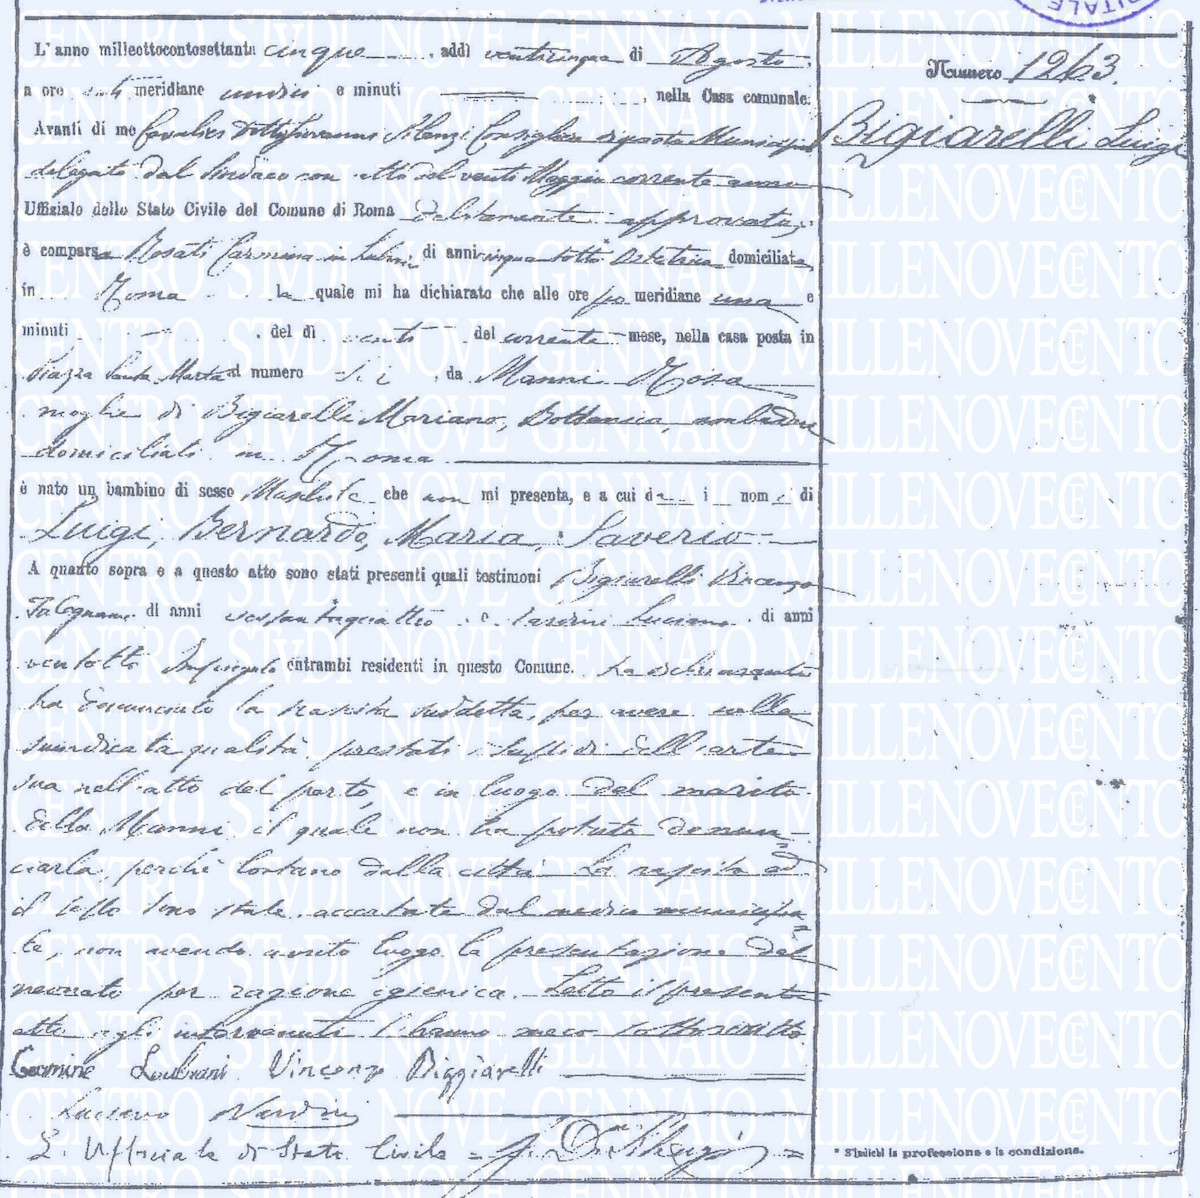 Numero 1263
Bigiarelli Luigi
L'anno milleottocentosettanta cinque, addì venticinque di Agosto,
a ore anti meridiane undici e minuti , nella Casa comunale.
Avanti di me Cavalier Consigliere Municipale
delegato dal Sindaco con atto del venti Maggio corrente anno
Uffiziale dello Stato Civile del Comune di Roma debitamente approvato,
è comparsa Rosati Carmina in , di anni cinquantotto Ostetrica domiciliata
in Roma la quale mi ha dichiarato che alle ore po meridiane una e
minuti , del dì venti del corrente mese, nella casa posta in
Piazza Santa Marta al numero , da Manni Rosa
moglie di Bigiarelli Mariano, ambedue
domiciliati in Roma
è nato un bambino di sesso Maschile che non mi presenta, e a cui da i nomi di
Luigi, Bernardo, Maria, Saverio
A quanto sopra e a questo atto sono stati presenti quali testimoni Bigiarelli Vincenzo
Falegname di anni sessantaquattro e Luciano di anni
ventotto Impiegato entrambi residenti in questo Comune. La dichiarante
ha denunciato la nascita suddetta, per avere nella
suindicata qualità prestati i sussidi dell'arte
sua nell'atto del parto, e in luogo del marito
della Manni, il quale non ha potuto denun-
ciarla, perché lontano dalla città. La nascita ed
il sesso sono state accertate dal medico municipa
le, non avendo avuto luogo la presentazione del
neonato per ragione igienica. Letto il presente
atto agli intervenuti l'hanno meco sottoscritto
Carmine Vincenzo Biggiarelli
Luciano Nardini
L'Ufficiale di Stato Civile
* S'indichi la professione o la condizione.